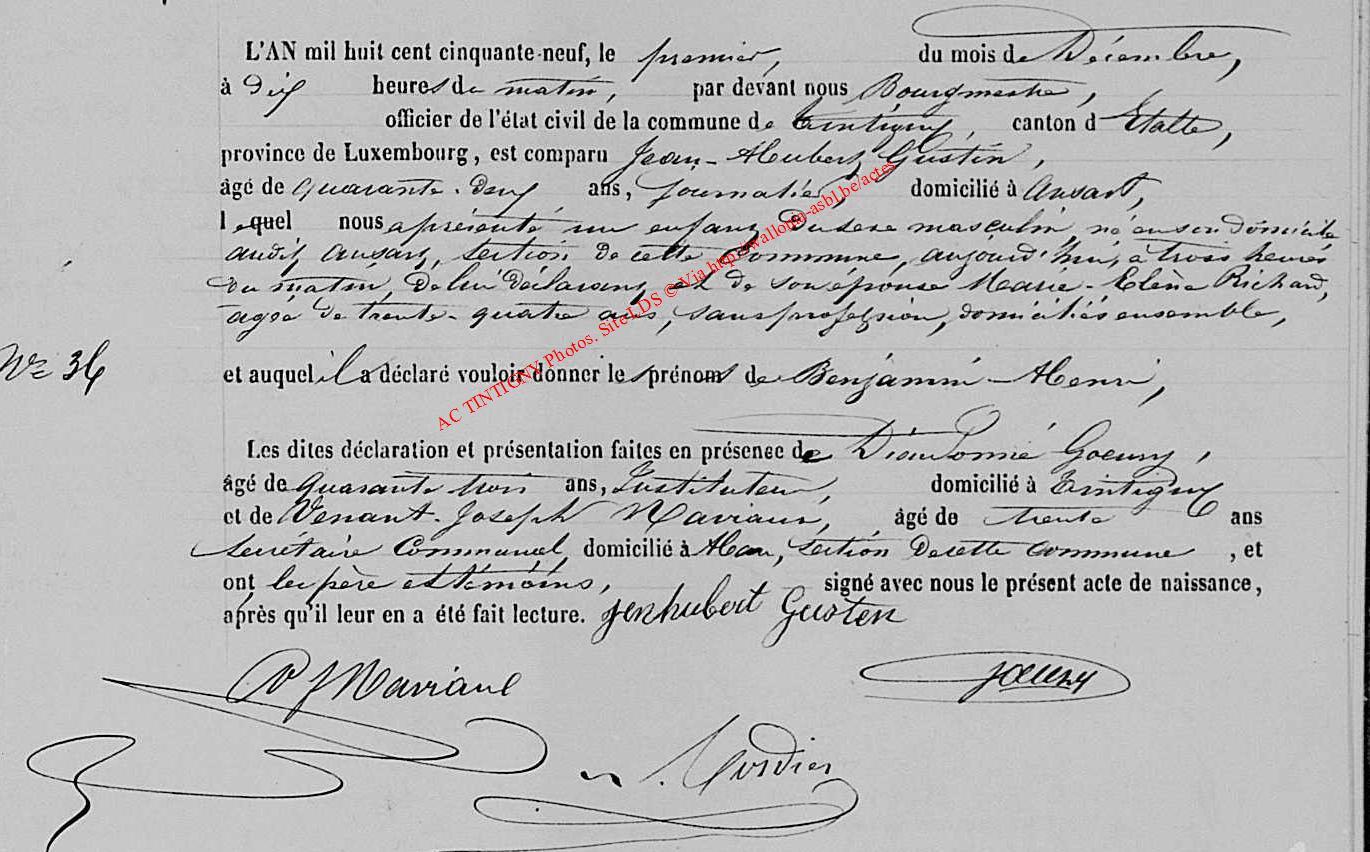 L'AN mil huit cent cinquante-neuf, le premier, du mois de Décembre,
à dix heures du matin, par devant nous Bourgmestre,
officier de l'état civil de la commune de Tintigny, canton d'Etalle,
province de Luxembourg, est comparu Jean-Hubert Gustin,
âgé de quarante-deux ans, journalier, domicilié à Ansart,
lequel nous a présenté un enfant du sexe masculin, né en son domicile
audit Ansart, section de cette commune, aujourd'hui, à trois heures
du matin, de lui déclarant, et de son épouse Marie-Elène Richard,
agée de trente-quatre ans, sans profession, domiciliés ensemble,
Nº 36
et auquel il a déclaré vouloir donner les prénoms de Benjamin-Henri,
Les dites déclaration et présentation faites en présence de Dieudonné Goeury,
âgé de quarante trois ans, Instituteur, domicilié à Tintigny
et de Venant-Joseph Maviaux, âgé de trente ans
Secrétaire Communal, domicilié à Han, section de cette commune, et
ont les père et témoins, signé avec nous le présent acte de naissance,
après qu'il leur en a été fait lecture. Jenhubert Gusten
V J Maviaux
Goeury
AC TINTIGNY Photos. Site LDS © Via http://wallonia-asbl.be/actes